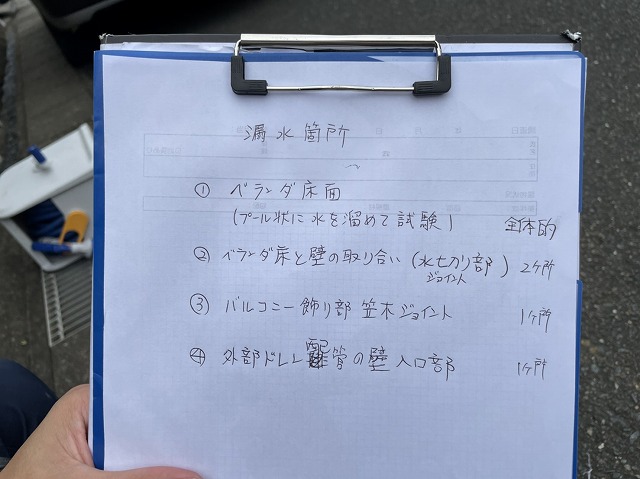 漏水箇所
① ベランダ床面
(プール状に水を溜めて試験) 全体的
② ベランダ床と壁の取り合い(水切り部) 2ヶ所
ジョイント
③ バルコニー飾り部 笠木ジョイント 1ヶ所
④ 外部ドレン配管の壁入口部 1ヶ所